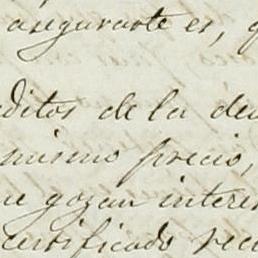 asegurarte es, q
editos de la deu
mismo precio,
ue gozan interes
certificado reci